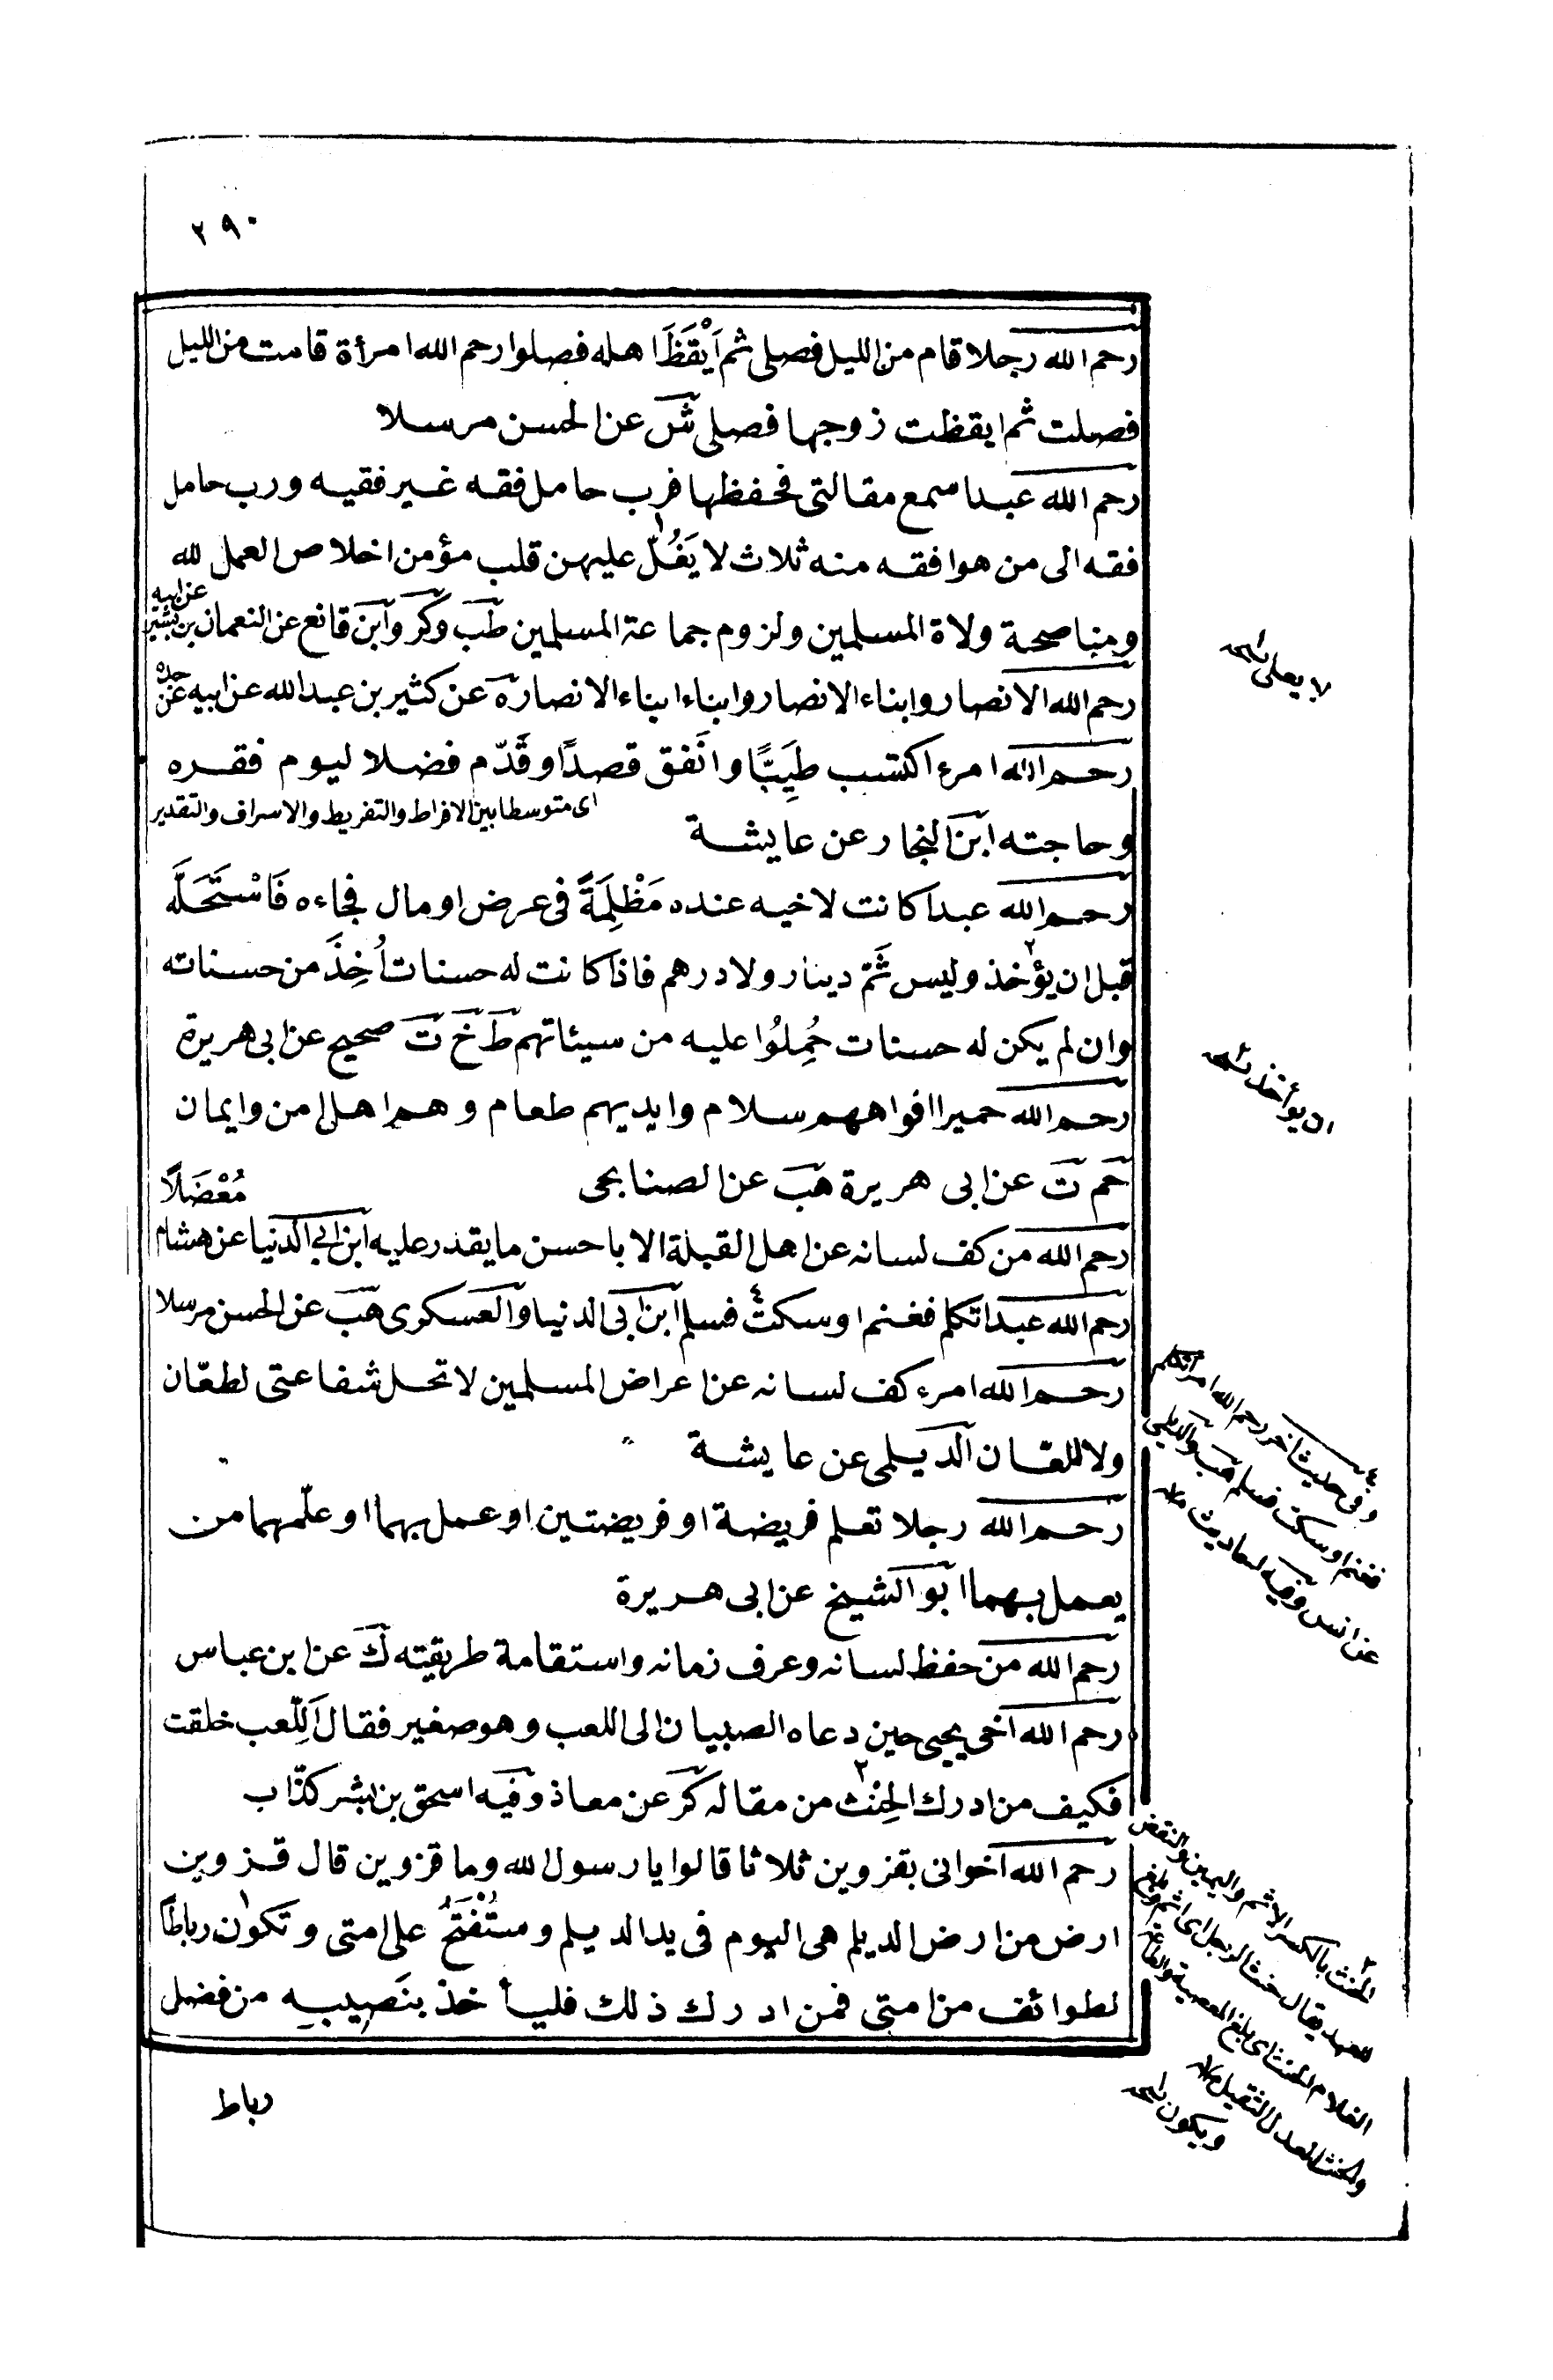 ٢٩٠
رحم الله رجلا قام من الليل فصلى ثم اَيْقَظَ اهله فصلوا رحم الله امرأة قامت من الليل
فصلت ثم ايقظت زوجها فصلى ش عن الحسن مرسلا
رحم الله عبدا سمع مقالتى فحفظها فرب حامل فقه غير فقيه ورب حامل
فقه الى من هو افقه منه ثلاث لا يَغُلّ عليهن قلب مؤمن اخلاص العمل لله
ومناصحة ولاة المسلمين ولزوم جماعة المسلمين طب وكر وابن قانع عن النعمان بن بشير
عن ابيه
رحم الله الانصار وابناء الانصار وابناء ابناء الانصار ه عن كثير بن عبد الله عن ابيه عن جده
رحم الله امرء اكتسب طَيِّبًا وانفق قصدًا وقَدّم فضلا ليوم فقره
اى متوسطا بين الافراط والتفريط والاسراف والتقدير
وحاجته ابن النجار عن عايشة
رحم الله عبدا كانت لاخيه عنده مَظْلِمَةً فى عرض او مال فجاءه فَاسْتَحَلَّه
قبل ان يؤخذ٢ وليس ثَمّ دينار ولا درهم فاذا كانت له حسنات اُخِذَ من حسناته
وان لم يكن له حسنات حُمِلُوا عليه من سيئاتهم ط خ ت صحيح عن ابى هريرة
رحم الله حميرا افواههم سلام وايديهم طعام وهم اهل امن وايمان
حم ت عن ابى هريرة هب عن الصنابحى مُعْضَلاً
رحم الله من كف لسانه عن اهل القبلة الا باحسن ما يقدر عليه ابن ابى الدنيا عن هشام
رحم الله عبدا تكلم فغنم او سكت٤ فسلم ابن ابى الدنيا والعسكرى هب عن الحسن مرسلا
رحم الله امرء كف لسانه عن اعراض المسلمين لا تحل شفاعتى لطعّان
ولا للعّان الديلمى عن عايشة
رحم الله رجلا تعلم فريضة او فريضتين او عمل بهما او علّمهما من
يعمل بهما ابو الشيخ عن ابى هريرة
رحم الله من حفظ لسانه وعرف زمانه واستقامة طريقته ك عن ابن عباس
رحم الله اخى يحيى حين دعاه الصبيان الى اللعب وهو صغير فقال اَلِلّعب خلقت
فكيف من ادرك الحِنْث٣ من مقاله كر عن معاذ وفيه اسحق بن بشر كذّاب
رحم الله اخوانى بقزوين ثلاثا قالوا يا رسول الله وما قزوين قال قزوين
ارض من ارض الديلم هى اليوم فى يد الديلم وستُفْتَحُ على امتى وتكون رباطًا
لطوائف من امتى فمن ادرك ذلك فليأخذ بنَصيبِه من فضل
رباط
لا يعلى نسخه
ان يؤاخذ نسخه
٤ وفى حديث آخر رحم الله امرأ تكلم
فغنم او سكت فسلم هب والديلمى
عن انس وفيه احاديث
٣ الحنث بالكسر الاثم واليمين والنقض
للعهد يقال حنث الرجل اى اثم
الغلام الحنث اى بلغ المعصية والطاعة
والحنث العدل الثقيل
ويكون نسخه